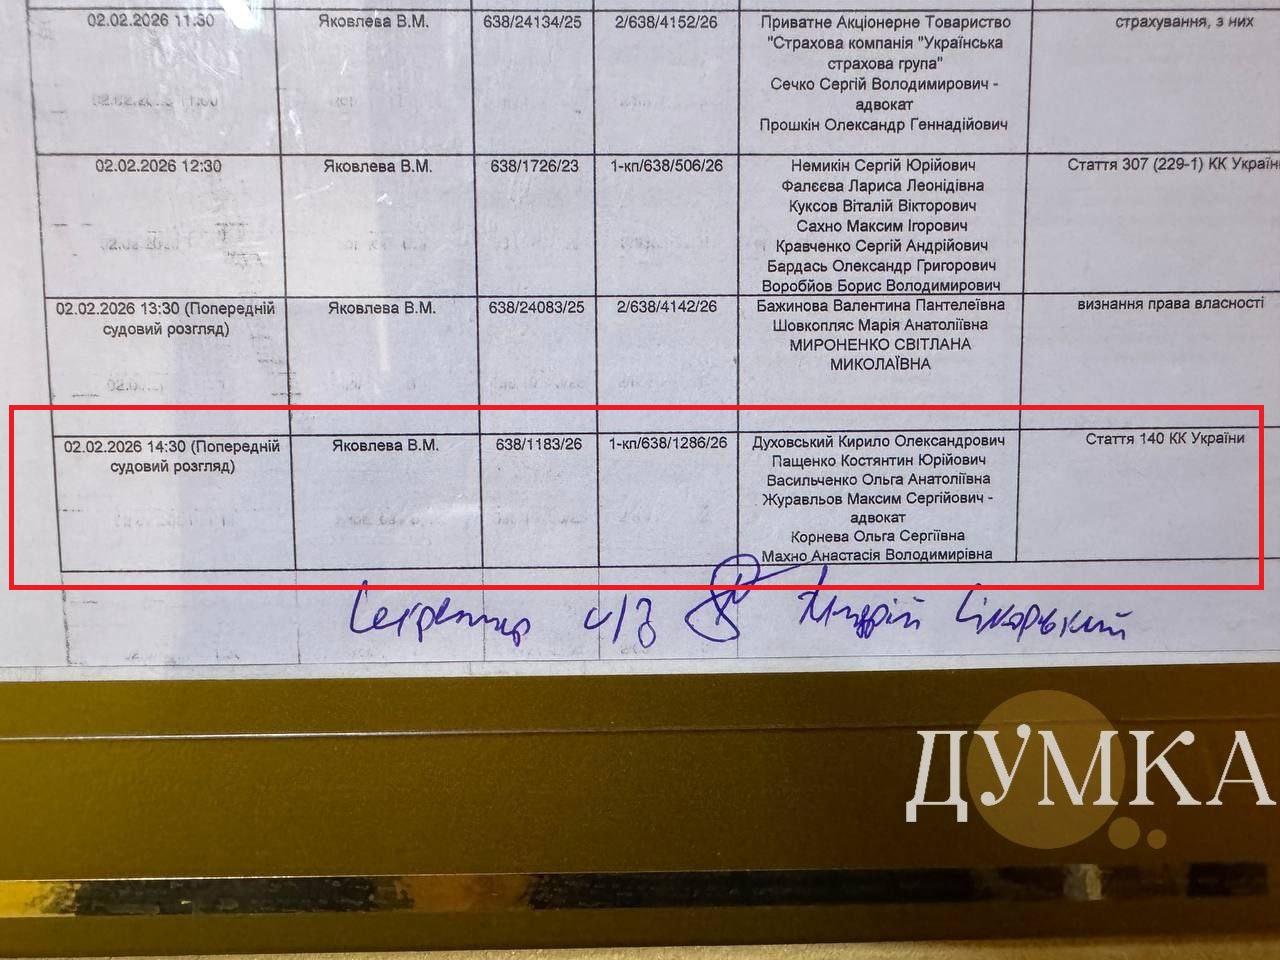 02.02.2026 11:30 Яковлева В.М. 638/24134/25 2/638/4152/26 Приватне Акціонерне Товариство страхування, з них
"Страхова компанія "Українська
страхова група"
Сечко Сергій Володимирович -
адвокат
Прошкін Олександр Геннадійович
02.02.2026 12:30 Яковлева В.М. 638/1726/23 1-кп/638/506/26 Немикін Сергій Юрійович Стаття 307 (229-1) КК Україн
Фалєєва Лариса Леонідівна
Куксов Віталій Вікторович
Сахно Максим Ігорович
Кравченко Сергій Андрійович
Бардась Олександр Григорович
Воробйов Борис Володимирович
02.02.2026 13:30 (Попередній Яковлева В.М. 638/24083/25 2/638/4142/26 Бажинова Валентина Пантелеївна визнання права власності
судовий розгляд) Шовкопляс Марія Анатоліївна
МИРОНЕНКО СВІТЛАНА
МИКОЛАЇВНА
02.02.2026 14:30 (Попередній Яковлева В.М. 638/1183/26 1-кп/638/1286/26 Духовський Кирило Олександрович Стаття 140 КК України
судовий розгляд) Пащенко Костянтин Юрійович
Васильченко Ольга Анатоліївна
Журавльов Максим Сергійович -
адвокат
Корнева Ольга Сергіївна
Махно Анастасія Володимирівна
с/з
ДУМКА